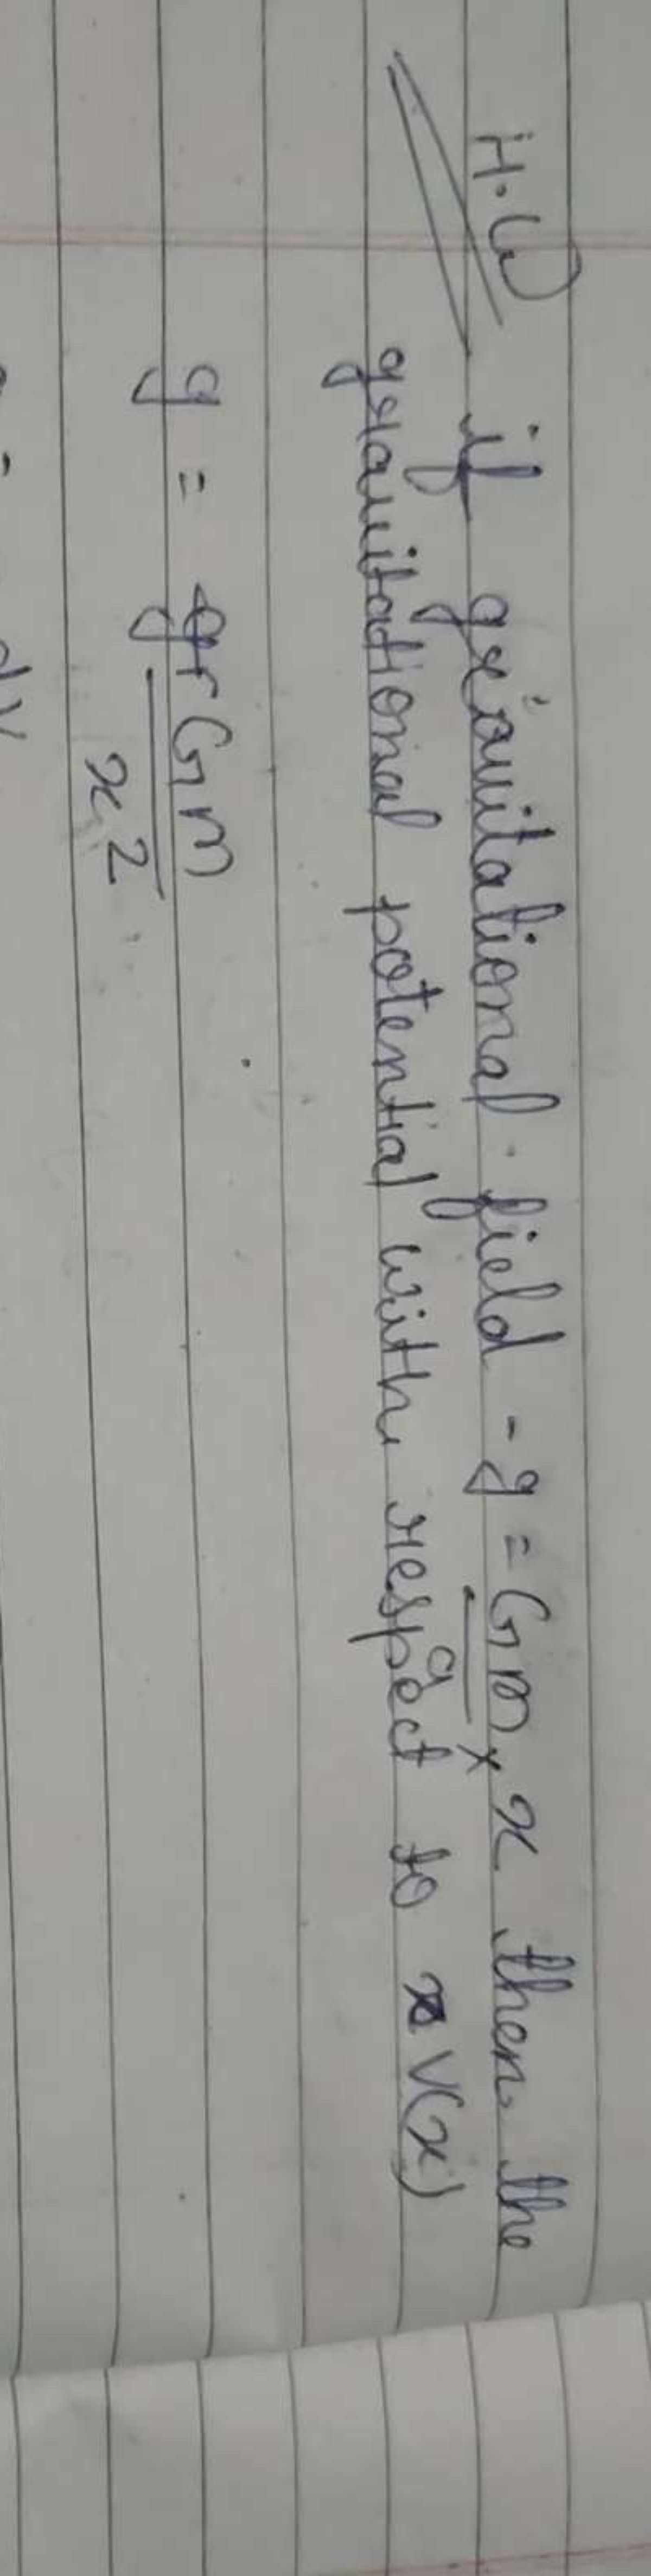 H.W
if gravitational field - g = Gm x x then the
a
gravitational potential with respect to V(x)
g = Gm
x2
dv